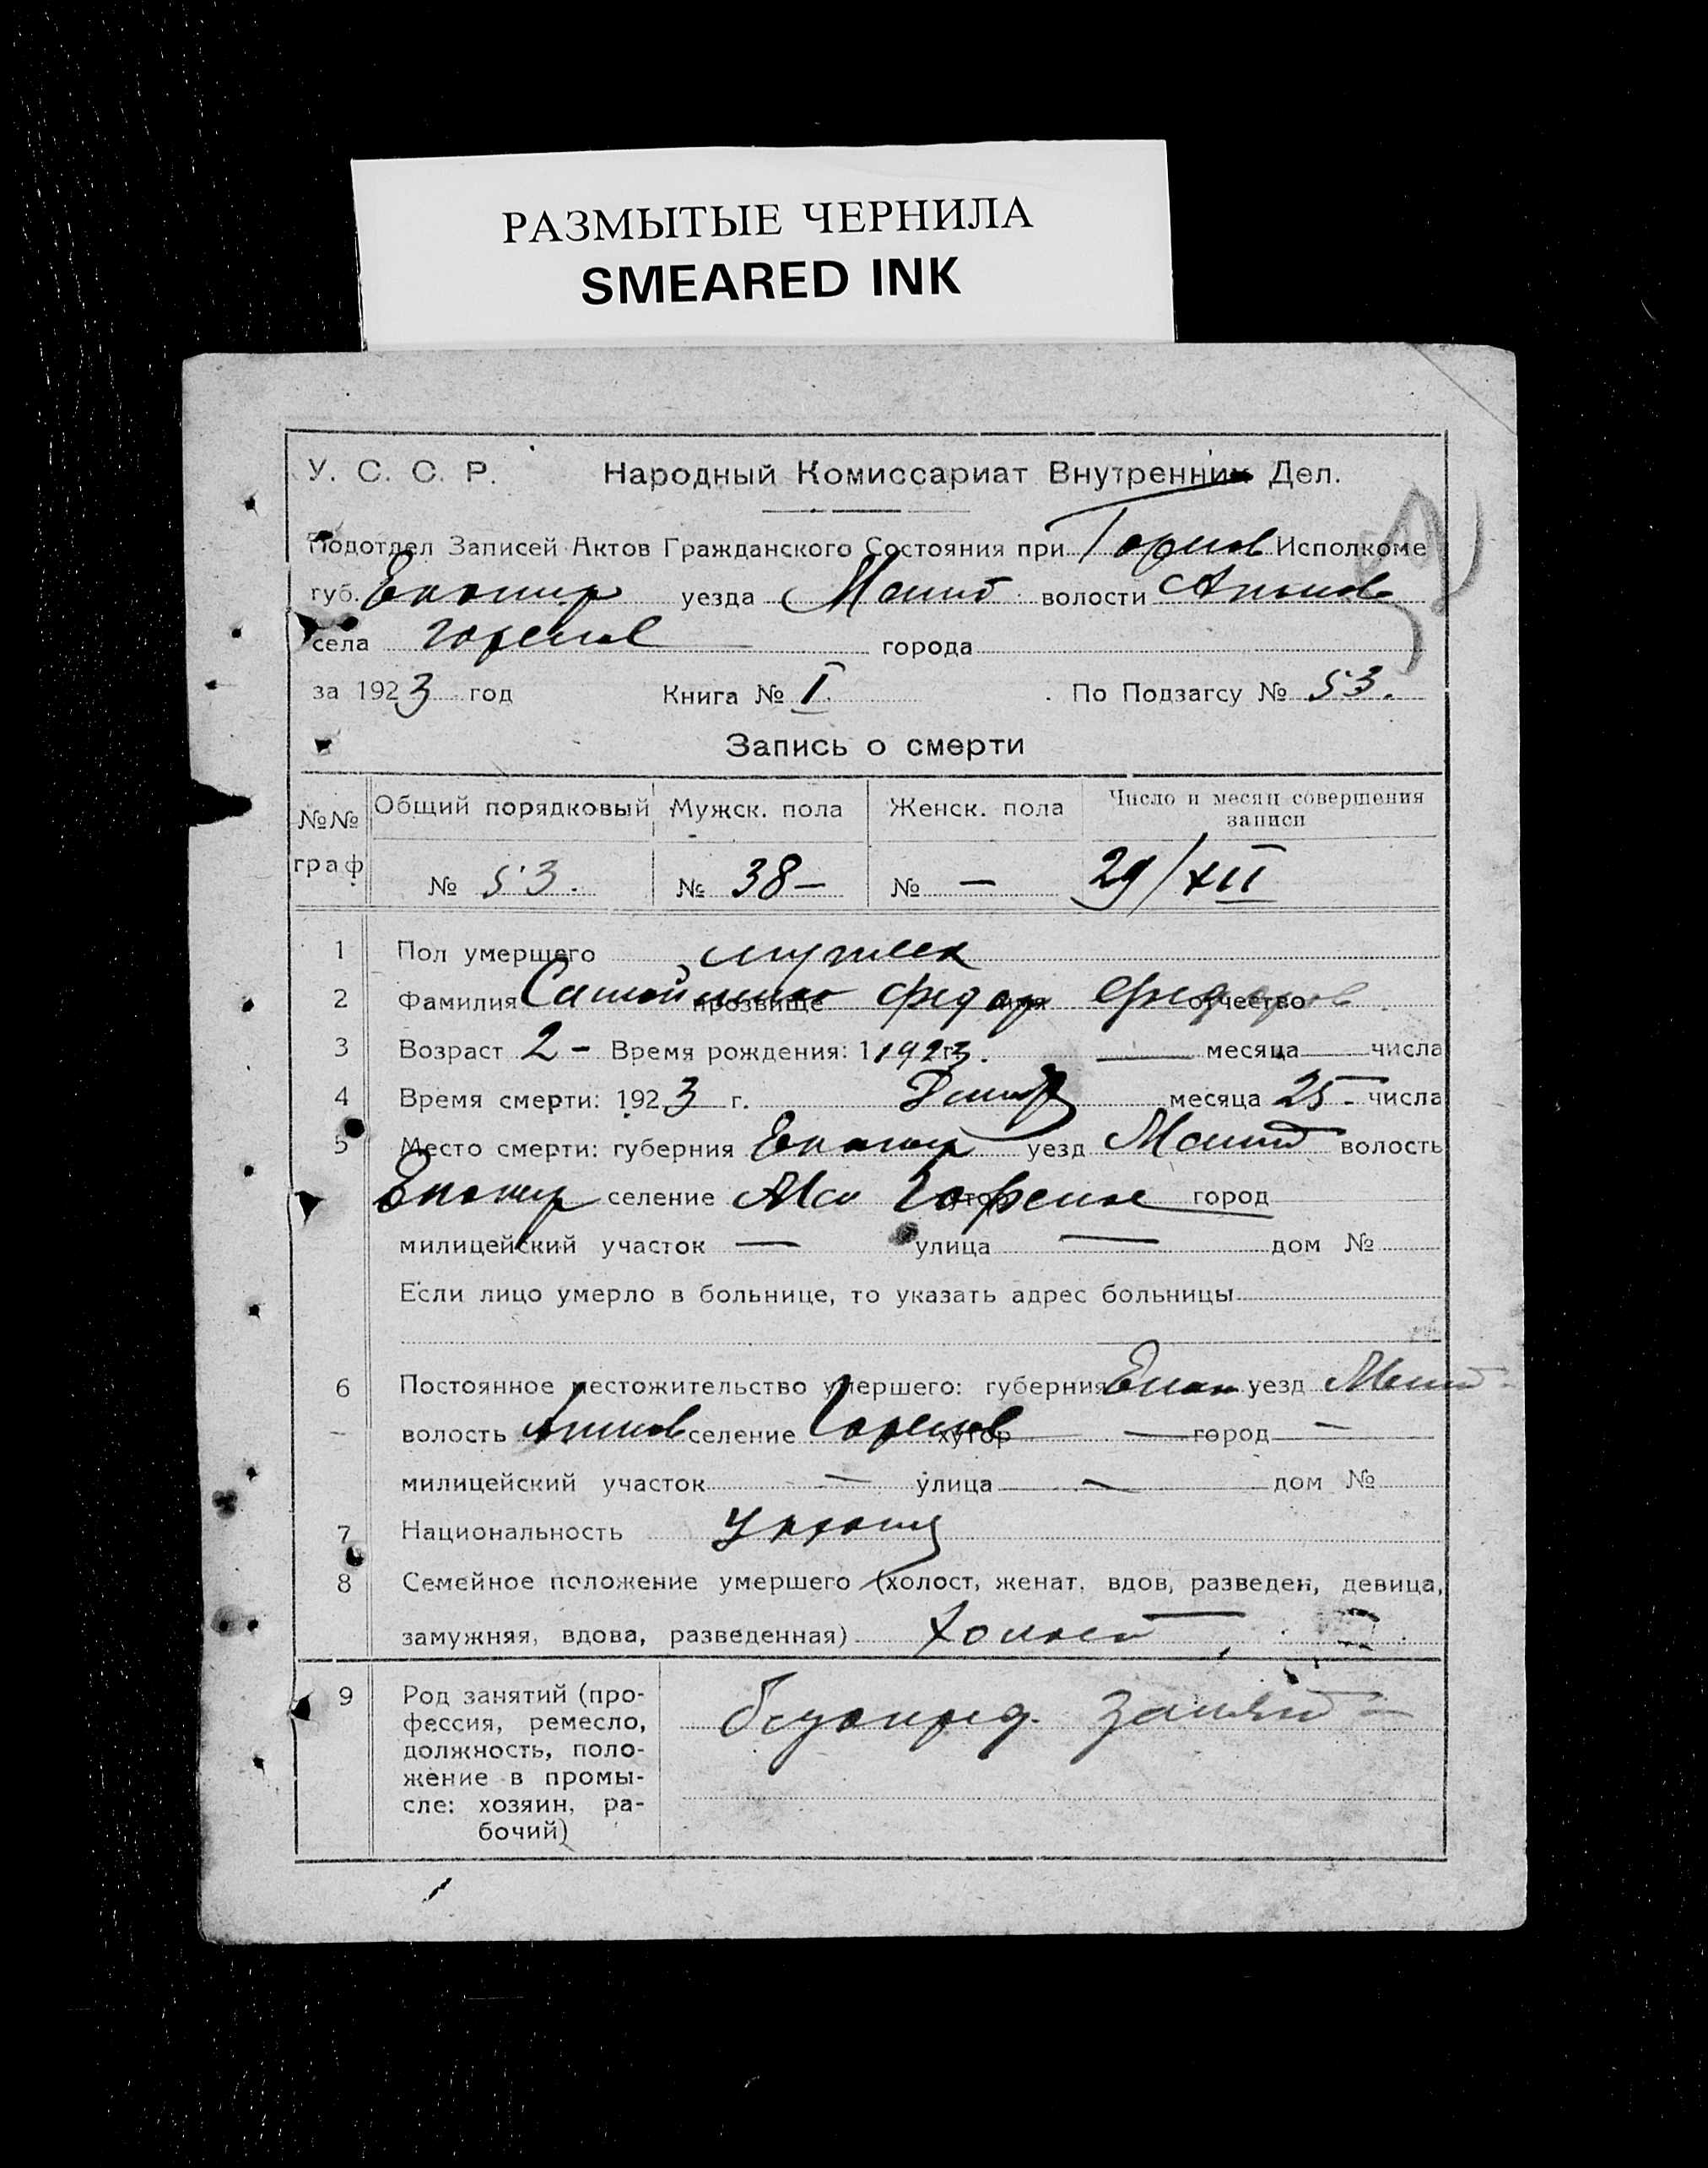 РАЗМЫТЫЕ ЧЕРНИЛА
SMEARED INK
У. С. С. Р. Народный Комиссариат Внутренних Дел.
Подотдел Записей Актов Гражданского Состояния при Исполкоме
губ. Екатир уезда волости
села города
за 1923 год Книга № I По Подзагсу № 53.
Запись о смерти
№№ граф Общий порядковый Мужск. пола Женск. пола Число и месяц совершения записи
№ 53. № 38— № — 29/XII
1 Пол умершего мужеск
2 Фамилия прозвище Федор имя отчество
3 Возраст 2 – Время рождения: 1 1923 г. — месяца — числа
4 Время смерти: 1923 г. месяца 25 – числа
5 Место смерти: губерния Екатир уезд волость
Екатир селение хутор город
милицейский участок — улица — дом №
Если лицо умерло в больнице, то указать адрес больницы
6 Постоянное местожительство умершего: губерния Екат уезд
волость селение хутор — город —
милицейский участок — улица — дом №
7 Национальность Украин
8 Семейное положение умершего (холост, женат, вдов, разведен, девица,
замужняя, вдова, разведенная) Холост
9 Род занятий (про-
фессия, ремесло,
должность, поло-
жение в промы-
сле: хозяин, ра-
бочий)
безопред. занят –